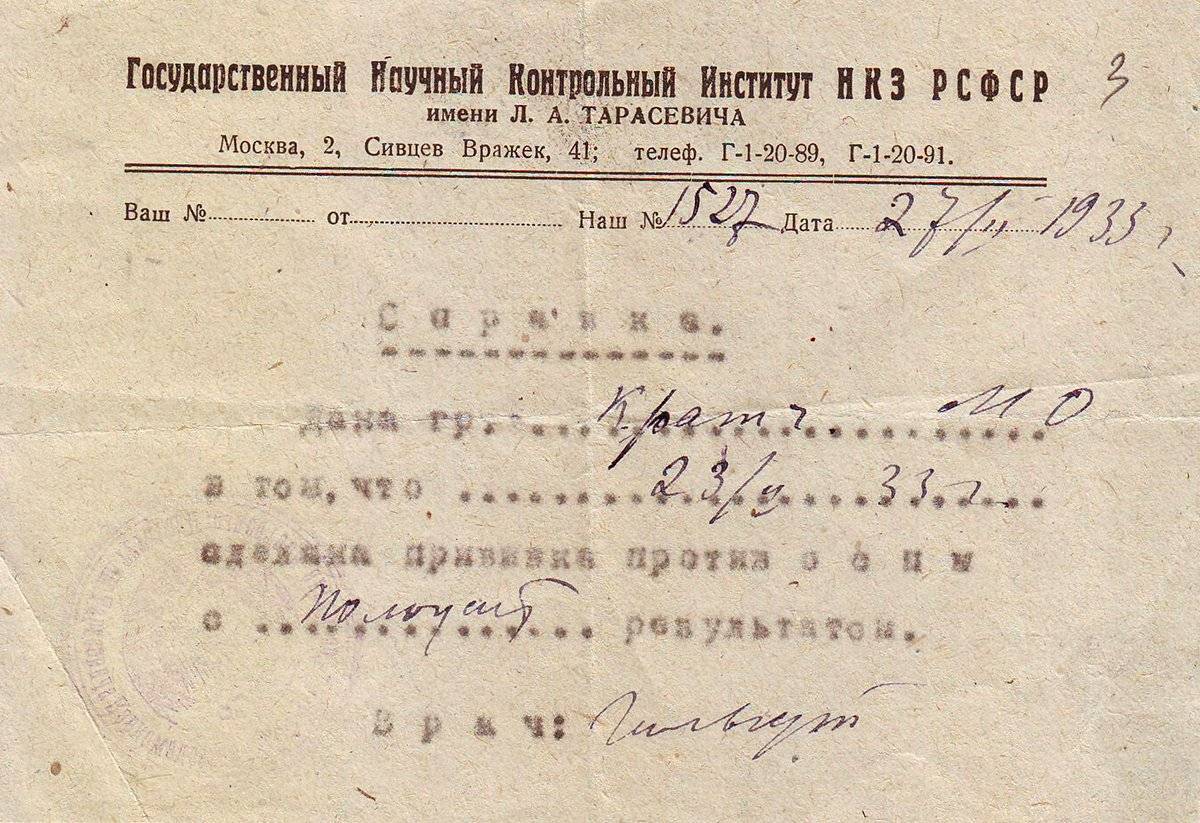 Государственный Научный Контрольный Институт НКЗ РСФСР
3
имени Л. А. ТАРАСЕВИЧА
Москва, 2, Сивцев Вражек, 41; телеф. Г-1-20-89, Г-1-20-91.
Ваш №.............. от.............................. Наш № 1527 Дата 27/II 1933 г.
Справка.
Дана гр. М О
в том, что 23/ 33 г.
сделана прививка против оспы
с результатом.
Врач: